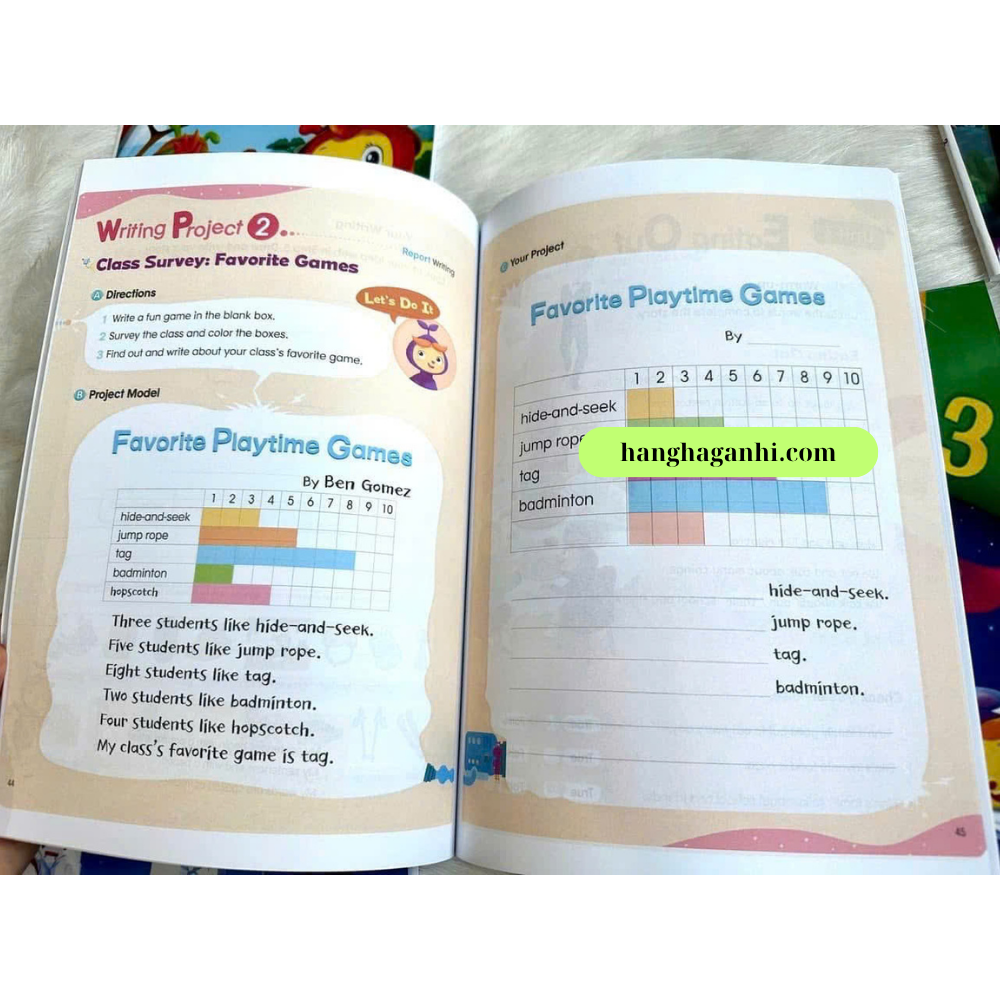 Writing Project 2
Report Writing
Class Survey: Favorite Games
A Directions
Let's Do It
1 Write a fun game in the blank box.
2 Survey the class and color the boxes.
3 Find out and write about your class's favorite game.
B Project Model
Favorite Playtime Games
By Ben Gomez
1 2 3 4 5 6 7 8 9 10
hide-and-seek
jump rope
tag
badminton
hopscotch
Three students like hide-and-seek.
Five students like jump rope.
Eight students like tag.
Two students like badminton.
Four students like hopscotch.
My class's favorite game is tag.
44
C Your Project
Favorite Playtime Games
By
1 2 3 4 5 6 7 8 9 10
hide-and-seek
jump rope
hanghaganhi.com
tag
badminton
hide-and-seek.
jump rope.
tag.
badminton.
45
3